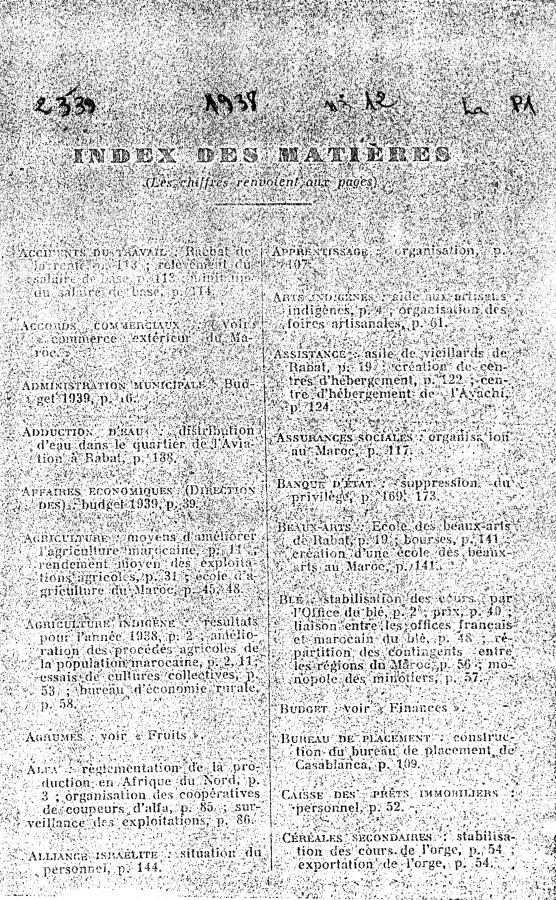 2339 1938 n° 12 La P1
INDEX DES MATIÈRES
(Les chiffres renvoient aux pages)
ACCIDENTS DU TRAVAIL : Rachat de
la rente, p. 113 ; relèvement du
salaire de base, p. 113 ; minimum
du salaire de base, p. 114.
ACCORDS COMMERCIAUX : (Voir
« commerce extérieur du Ma-
roc. »
ADMINISTRATION MUNICIPALE : Bud-
get 1939, p. 16.
ADDUCTION D'EAU : distribution
d'eau dans le quartier de l'Avia-
tion à Rabat, p. 138.
AFFAIRES ECONOMIQUES (DIRECTION
DES) : budget 1939, p. 39.
AGRICULTURE : moyens d'améliorer
l'agriculture marocaine, p. 11 ;
rendement moyen des exploita-
tions agricoles, p. 31 ; école d'a-
griculture du Maroc, p. 45, 48.
AGRICULTURE INDIGÈNE : résultats
pour l'année 1938, p. 2 ; amélio-
ration des procédés agricoles de
la population marocaine, p. 2, 11 ;
essais de cultures collectives, p.
53 ; bureau d'économie rurale,
p. 58.
AGRUMES : voir « Fruits ».
ALFA : règlementation de la pro-
duction en Afrique du Nord, p.
3 ; organisation des coopératives
de coupeurs d'alfa, p. 85 ; sur-
veillance des exploitations, p. 86.
ALLIANCE ISRAÉLITE : situation du
personnel, p. 144.
APPRENTISSAGE : organisation, p.
107.
ARTS INDIGÈNES : aide aux artisans
indigènes, p. 4 ; organisation des
foires artisanales, p. 61.
ASSISTANCE : asile de vieillards de
Rabat, p. 19 ; création de cen-
tres d'hébergement, p. 122 ; cen-
tre d'hébergement de l'Ayachi,
p. 124.
ASSURANCES SOCIALES : organisation
au Maroc, p. 117.
BANQUE D'ÉTAT : suppression du
privilège, p. 169, 173.
BEAUX-ARTS : Ecole des beaux-arts
de Rabat, p. 19 ; bourses, p. 141
création d'une école des beaux-
arts au Maroc, p. 141.
BLÉ : stabilisation des cours par
l'Office du blé, p. 2 ; prix, p. 40 ;
liaison entre les offices français
et marocain du blé, p. 48 ; ré-
partition des contingents entre
les régions du Maroc, p. 56 ; mo-
nopole des minotiers, p. 57.
BUDGET : voir « Finances ».
BUREAU DE PLACEMENT : construc-
tion du bureau de placement de
Casablanca, p. 109.
CAISSE DES PRÊTS IMMOBILIERS :
personnel, p. 52.
CÉRÉALES SECONDAIRES : stabilisa-
tion des cours de l'orge, p. 54 ;
exportation de l'orge, p. 54.